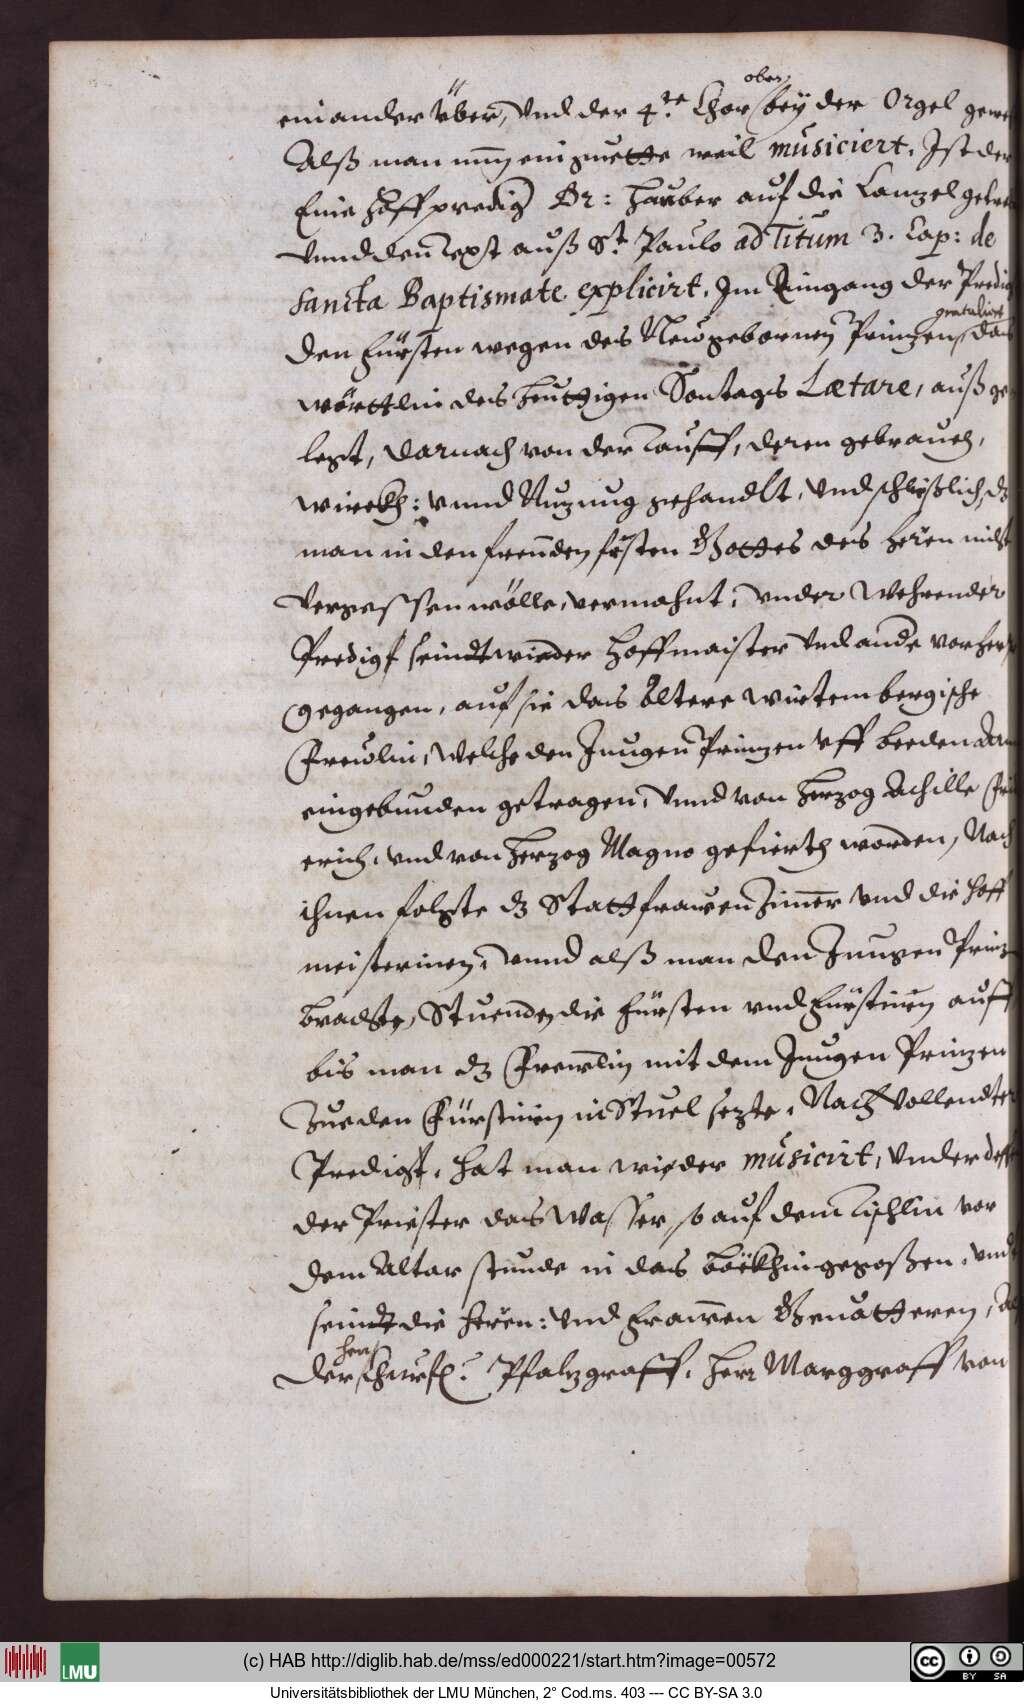 einander über, Vnd der 4.te Chor oben bey der Orgel gewe
Alß man nun ein guette weil musiciert. Ist der
Eine Hoffpredig Dr: Hauber auf die Canzel getre
Vnnd den Text auß St. Paulo ad Titum 3. Cap: de
Sancta Baptismate explicirt. Im Eingang der Predig
den Fürsten wegen des Newgebornen Prinzen, gratuliert das
wörttlin des heuttigen Sontags Lætare, auß ge
legt, darnach von der Tauff, deren gebrauch,
wirckh: vnnd Nuzung gehandlt, Vnd schlüßlich, dz
man in den freuden festen Gottes des Herren nicht
Vergessen wölle, vermahnt, vnder Wehrender
Predigt seindt wieder Hoffmaister Vnd ande vorher
gegangen, auf sie das Öltere Würtembergische
Frewlin, Welche den Jungen Prinzen vff beeden Arm
eingebunden getragen, Vnnd von Herzog Achille Frid
erich, vnd von Herzog Magno gefierth worden, Nach
ihnen folgte dz Stattfrawen Zimmer Vnd die Hoff
meisterinen, Vnnd alß man den Jungen Prinz
brachte, Stuenden die Fürsten vnd Fürstinen auff
bis man dz Frewlin mit dem Jungen Prinzen
Zue den Fürstinen in Stuel sezte, Nach Vollendter
Predigt, hat man wieder musicirt, Vnder deß
der Priester das Wasser, so auf dem Tischlin vor
dem Altar stunde in das Böckhin gegoßen, vnd
seindt die Herren: Vnd Frawen Gevatteren, Al
der Herr Churf. Pfalzgraff, Herr Marggraff von
(c) HAB http://diglib.hab.de/mss/ed000221/start.htm?image=00572
LMU
CC BY SA
Universitätsbibliothek der LMU München, 2° Cod.ms. 403 --- CC BY-SA 3.0